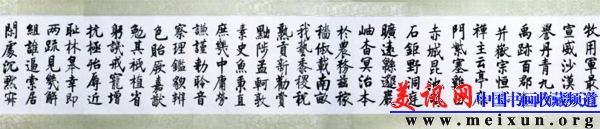 牧用軍最
宣威沙漠
譽丹青九
禹跡百郡
并嶽宗恒
禪主云亭
門紫塞雞
赤城昆池
石鉅野洞庭
曠遠綿邈巖
岫杳冥治本
於農務茲稼
穡俶載南畝
我藝黍稷稅
熟貢新勸賞
黜陟孟軻敦
素史魚秉直
庶幾中庸勞
謙謹勑聆音
察理鑑貌辨
色貽厥嘉猷
勉其祗植省
躬譏誡寵增
抗極殆辱近
恥林皋幸即
兩疏見幾解
組誰逼索居
閑處沉默寂
美讯网 中国书画收藏频道
www.meixun.org